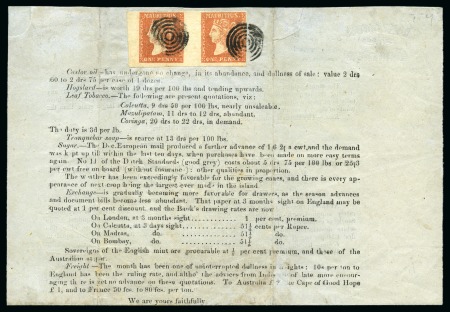 MAURITIUS MAURITIUS
ONE PENNY ONE PENNY
Castor oil—has undergone no change, in its abundance, and dullness of sale: value 2 drs
60 to 2 drs 75 per case of 1 dozen.
Hogslard—is worth 19 drs per 100 lbs and tending upwards.
Leaf Tobacco.—The following are present quotations, viz:
Calcutta, 9 drs 50 per 100 lbs, nearly unsaleable.
Masulipatam, 11 drs to 12 drs, abundant.
Coringa, 20 drs to 22 drs, in demand.
The duty is 3d per lb.
Tranquebar soap—is scarce at 13 drs per 100 lbs.
Sugar.—The Dec. European mail produced a further advance of 1s6 2s a cwt, and the demand
was kept up till within the last ten days, when purchases have been made on more easy terms
again. No 11 of the Dutch Standards (good grey) costs about 5 drs 75 per 100 lbs or 25s3
per cwt free on board (without insurance): other qualities in proportion.
The weather has been exceedingly favorable for the growing canes, and there is every ap-
pearance of next crop being the largest ever made in the island.
Exchange—is gradually becoming more favorable for drawers, as the season advances
and document bills become less abundant. That paper at 3 months sight on England may be
quoted at 1 per cent discount, and the Bank's drawing rates are now
On London, at 3 months sight 1 per cent. premium.
On Calcutta, at 3 days sight 51½ cents per Rupee.
On Madras, do. 51½ do.
On Bombay, do. 51½ do.
Sovereigns of the English mint are procurable at ½ per cent premium, and those of the
Australian at par.
Freight—The month has been one of uninterrupted dullness in freights; 10s per ton to
England has been the ruling rate, and although the advices from India are of late more encour-
aging there is yet no advance on these quotations. To Australia £ Cape of Good Hope
£ 1, and to France 50 fcs. to 80 fcs. per ton.
We are yours faithfully.